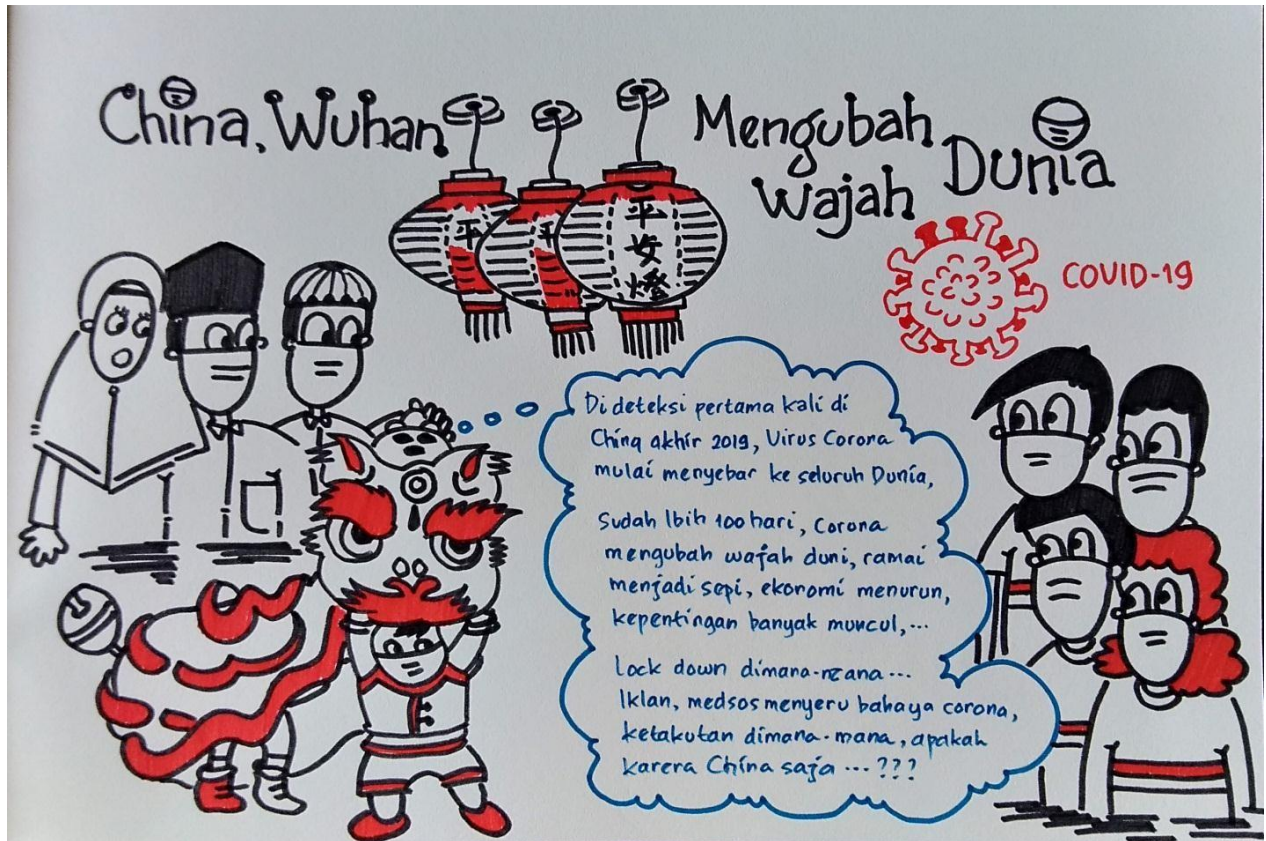 China, Wuhan
Mengubah
Wajah Dunia
平
平
平安燈
COVID-19
Di deteksi pertama kali di
China akhir 2019, Virus Corona
mulai menyebar ke seluruh Dunia,
Sudah lbih 100 hari, Corona
mengubah wajah duni, ramai
menjadi sepi, ekonomi menurun,
kepentingan banyak muncul,...
Lock down dimana-mana...
Iklan, medsos menyeru bahaya corona,
ketakutan dimana-mana, apakah
karera China saja ...???